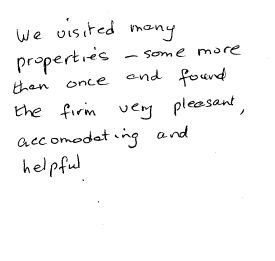 We visited many
properties - some more
than once and found
the firm very pleasant,
accomodating and
helpful